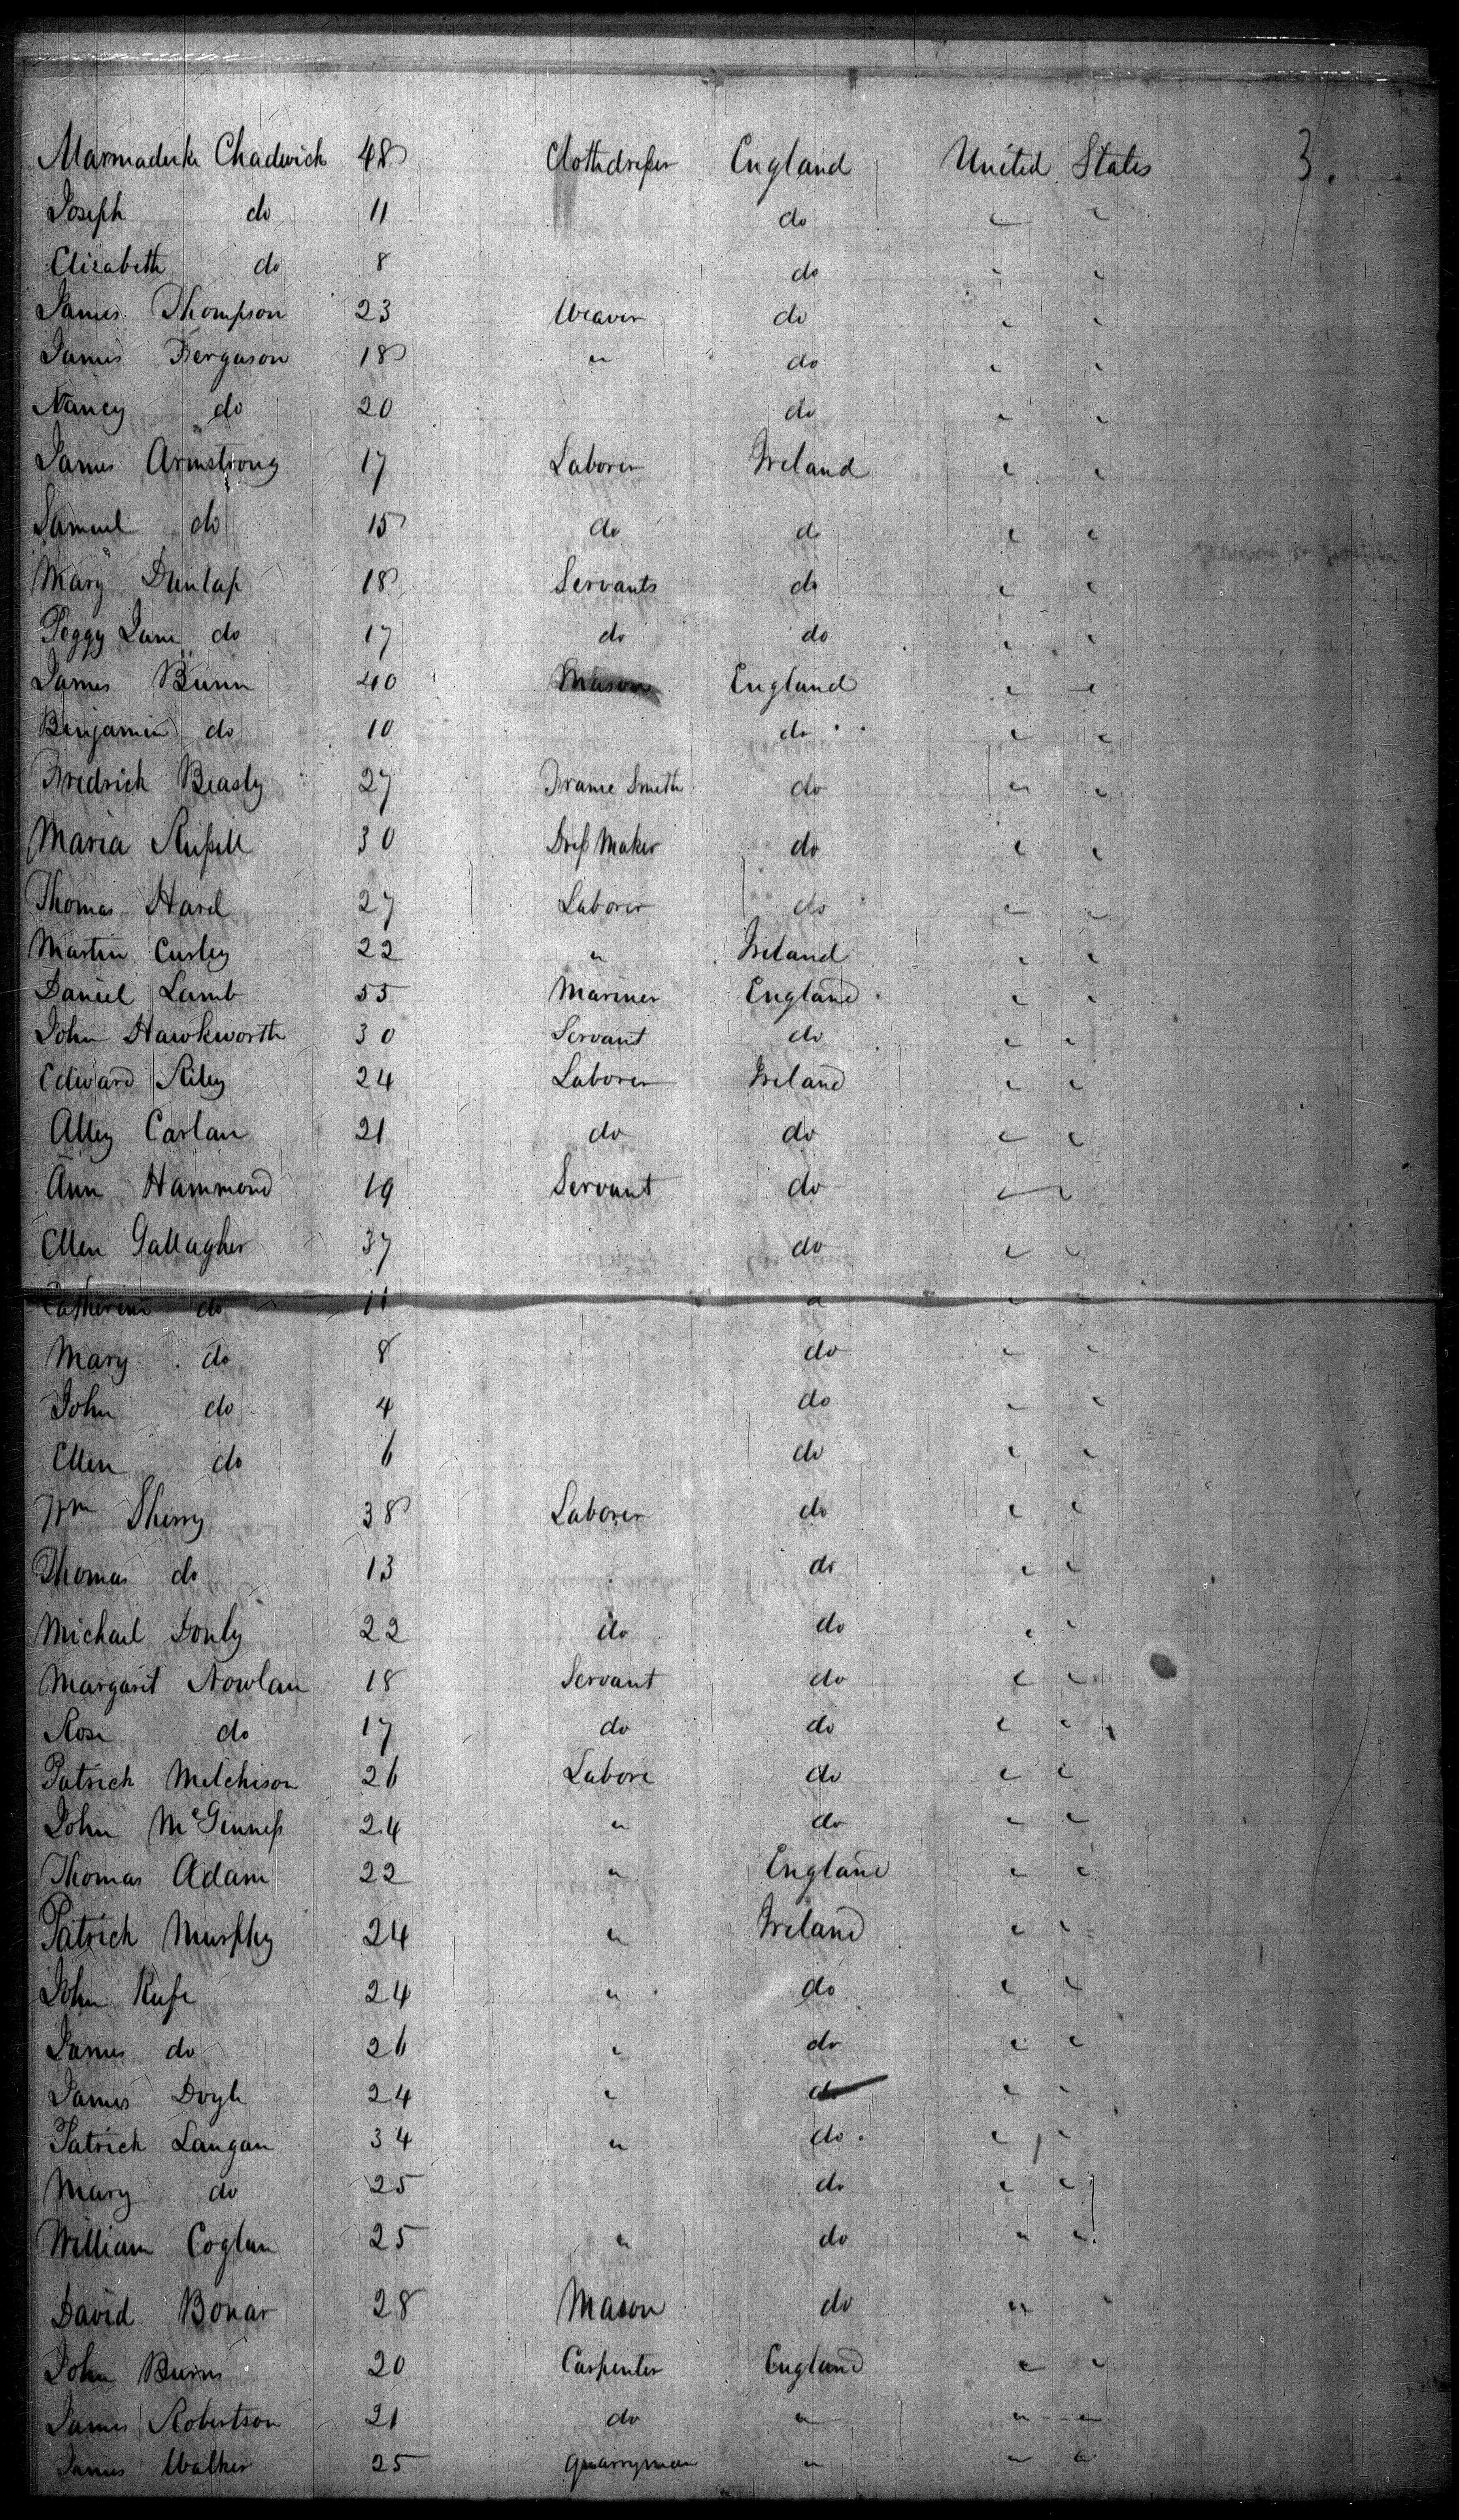 Marmaduke Chadwick 48 Clothdresser England United States 3.
Joseph do 11 do " "
Elizabeth do 8 do " "
James Thompson 23 Weaver do " "
James Ferguson 18 " do " "
Nancy do 20 do " "
James Armstrong 17 Laborer Ireland " "
Samuel do 15 do do " "
Mary Dunlap 18 Servants do " "
Peggy Jane do 17 do do " "
James Bunn 40 Mason England " "
Benjamin do 10 do " "
Fredrick Beasly 27 Frame Smith do " "
Maria Russell 30 Dress Maker do " "
Thomas Hard 27 Laborer do " "
Martin Curley 22 " Ireland " "
Daniel Lamb 55 Mariner England " "
John Hawkworth 30 Servant do " "
Edward Riley 24 Laborer Ireland " "
Alley Carlan 21 do do " "
Ann Hammond 19 Servant do " "
Ellen Gallagher 37 do " "
Catherine do 11 " " "
Mary do 8 do " "
John do 4 do " "
Ellen do 6 do " "
Wm Sherry 38 Laborer do " "
Thomas do 13 do " "
Michael Donly 22 do do " "
Margaret Nowlan 18 Servant do " "
Rose do 17 do do " "
Patrick Mitchison 26 Labore do " "
John McGinness 24 " do " "
Thomas Adam 22 " England " "
Patrick Murphy 24 " Ireland " "
John 24 " do " "
James do 26 " do " "
James Doyle 24 " do " "
Patrick Langan 34 " do " "
Mary do 25 do " "
William Coglan 25 " do " "
David Bonar 28 Mason do " "
John Burns 20 Carpenter England " "
James Robertson 21 do " " "
James Walker 25 Quarryman " " "